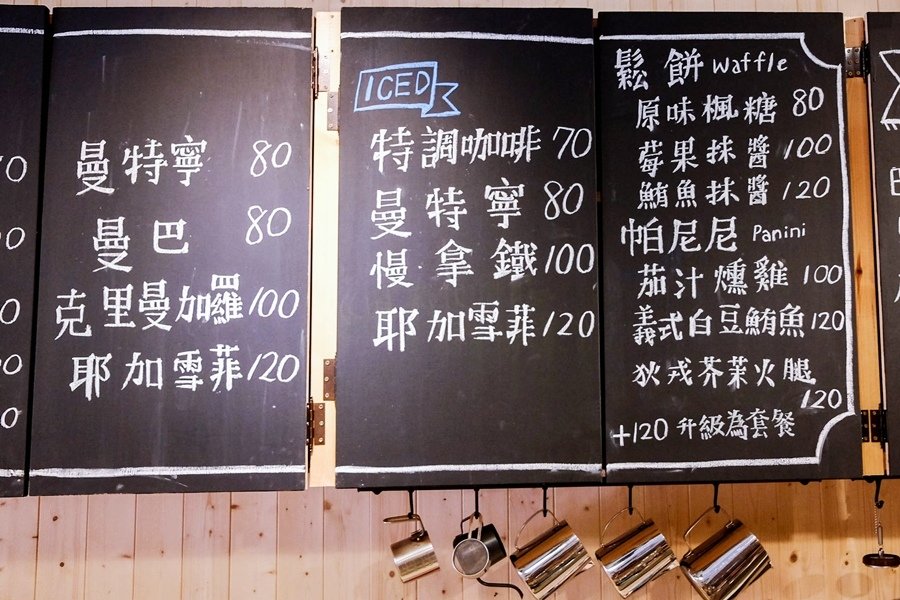 曼特寧 80
曼巴 80
克里曼加羅 100
耶加雪菲 120
ICED
特調咖啡 70
曼特寧 80
慢拿鐵 100
耶加雪菲 120
鬆餅 Waffle
原味楓糖 80
莓果抹醬 100
鮪魚抹醬 120
帕尼尼 Panini
茄汁燻雞 100
義式白豆鮪魚 120
狄戎芥茉火腿
120
+120 升級為套餐